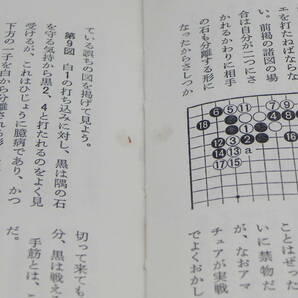 ェを打たねばならな
い。前掲の諸図の場
合は自分が二つにさ
かれるかわりに相手
の石も分離する形に
なったからさしつか
18
16
14
13
a
17
15
ことはぜった
いに禁物だ
が、なおアマ
チュアが実戦
でよくおかし
ている誤ちの図を掲げて見よう。
第9図 白1の打ち込みに対し、黒は隅の石
を守る気持から黒2、4と打たれるのをよく見
受けるが、これはひじょうに臆病であり、かつ
下方の一子を白から分離される形
切って来ても
分、黒は戦え
だ。
手筋とは、